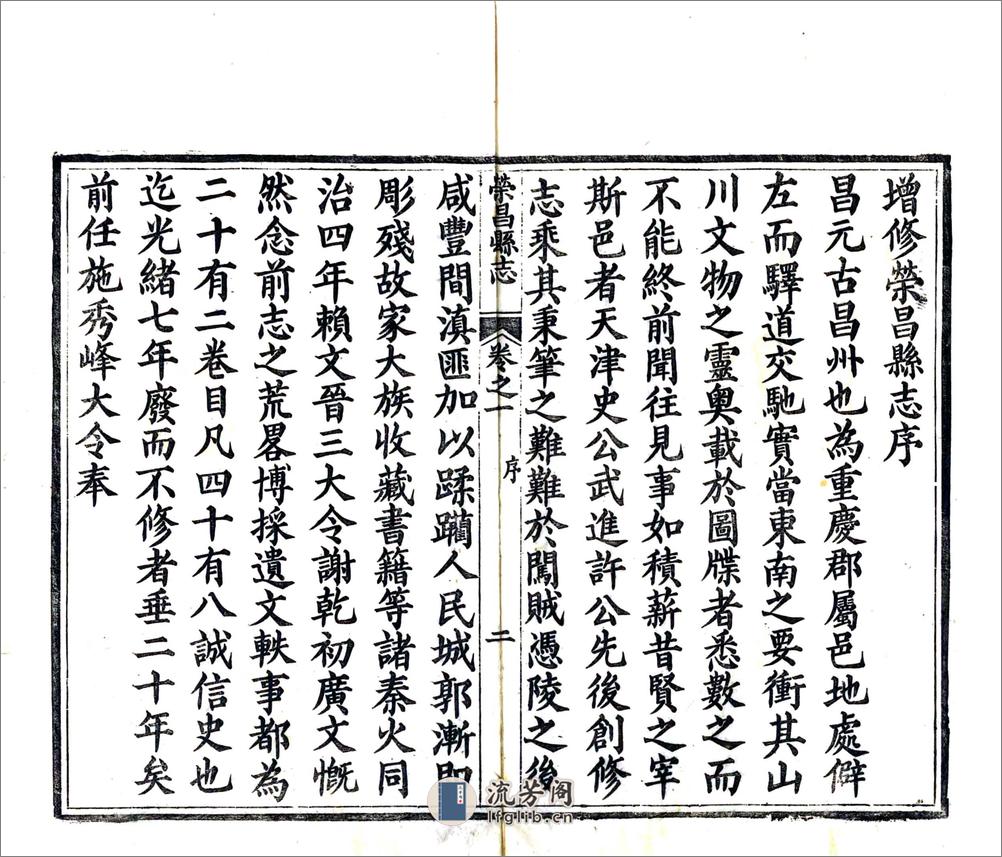 增修榮昌縣志序
昌元古昌州也為重慶郡屬邑地處僻
左而驛道交馳實當東南之要衝其山
川文物之靈奧載於圖牒者悉數之而
不能終前聞往見事如積薪昔賢之宰
斯邑者天津史公武進許公先後創修
志乘其秉筆之難難於闖賊憑陵之後
榮昌縣志 卷之一 序 二
咸豐間滇匪加以蹂躪人民城郭漸即
彫殘故家大族收藏書籍等諸秦火同
治四年賴文晉三大令謝乾初廣文慨
然念前志之荒畧博採遺文軼事都為
二十有二卷目凡四十有八誠信史也
迄光緒七年廢而不修者垂二十年矣
前任施秀峰大令奉
流芳阁
lfglib.cn